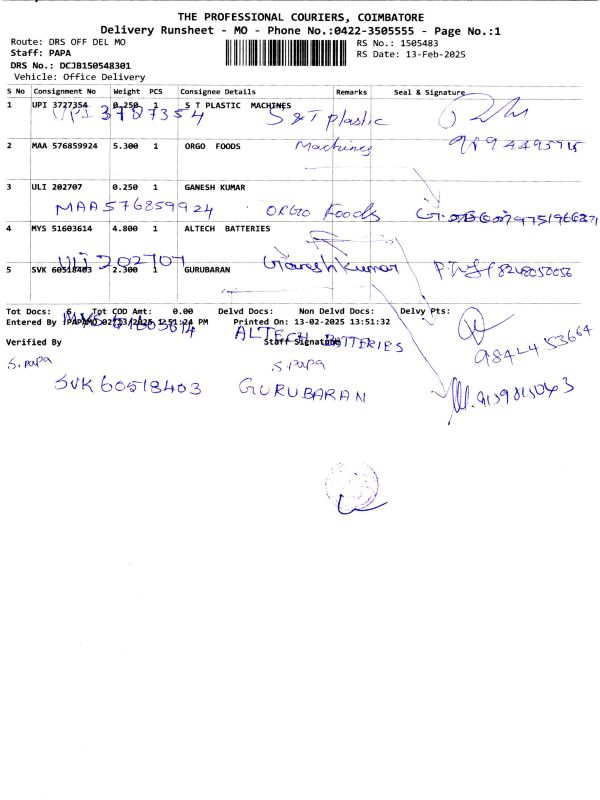 THE PROFESSIONAL COURIERS, COIMBATORE
Delivery Runsheet - MO - Phone No.:0422-3505555 - Page No.:1
Route: DRS OFF DEL MO
RS No.: 1505483
Staff: PAPA
RS Date: 13-Feb-2025
DRS No.: DCJB150548301
Vehicle: Office Delivery
S No Consignment No Weight PCS Consignee Details Remarks Seal & Signature
1 UPI 3727354 0.250 1 S T PLASTIC MACHINES
S &T plastic
2 MAA 576859924 5.300 1 ORGO FOODS
Machines
3 ULI 202707 0.250 1 GANESH KUMAR
MAA576859924 ORGO Foods
4 MYS 51603614 4.800 1 ALTECH BATTERIES
ULI 202707 Ganesh kumar 8248050056
5 SVK 60518403 2.300 1 GURUBARAN
Tot Docs: 5 Tot COD Amt: 0.00 Delvd Docs: Non Delvd Docs: Delvy Pts:
Entered By :PAPAMO Printed On: 13-02-2025 13:51:32
ALTECH BATTERIES
Verified By Staff Signature
S. PAPA S. PAPA
SVK 60518403 GURUBARAN